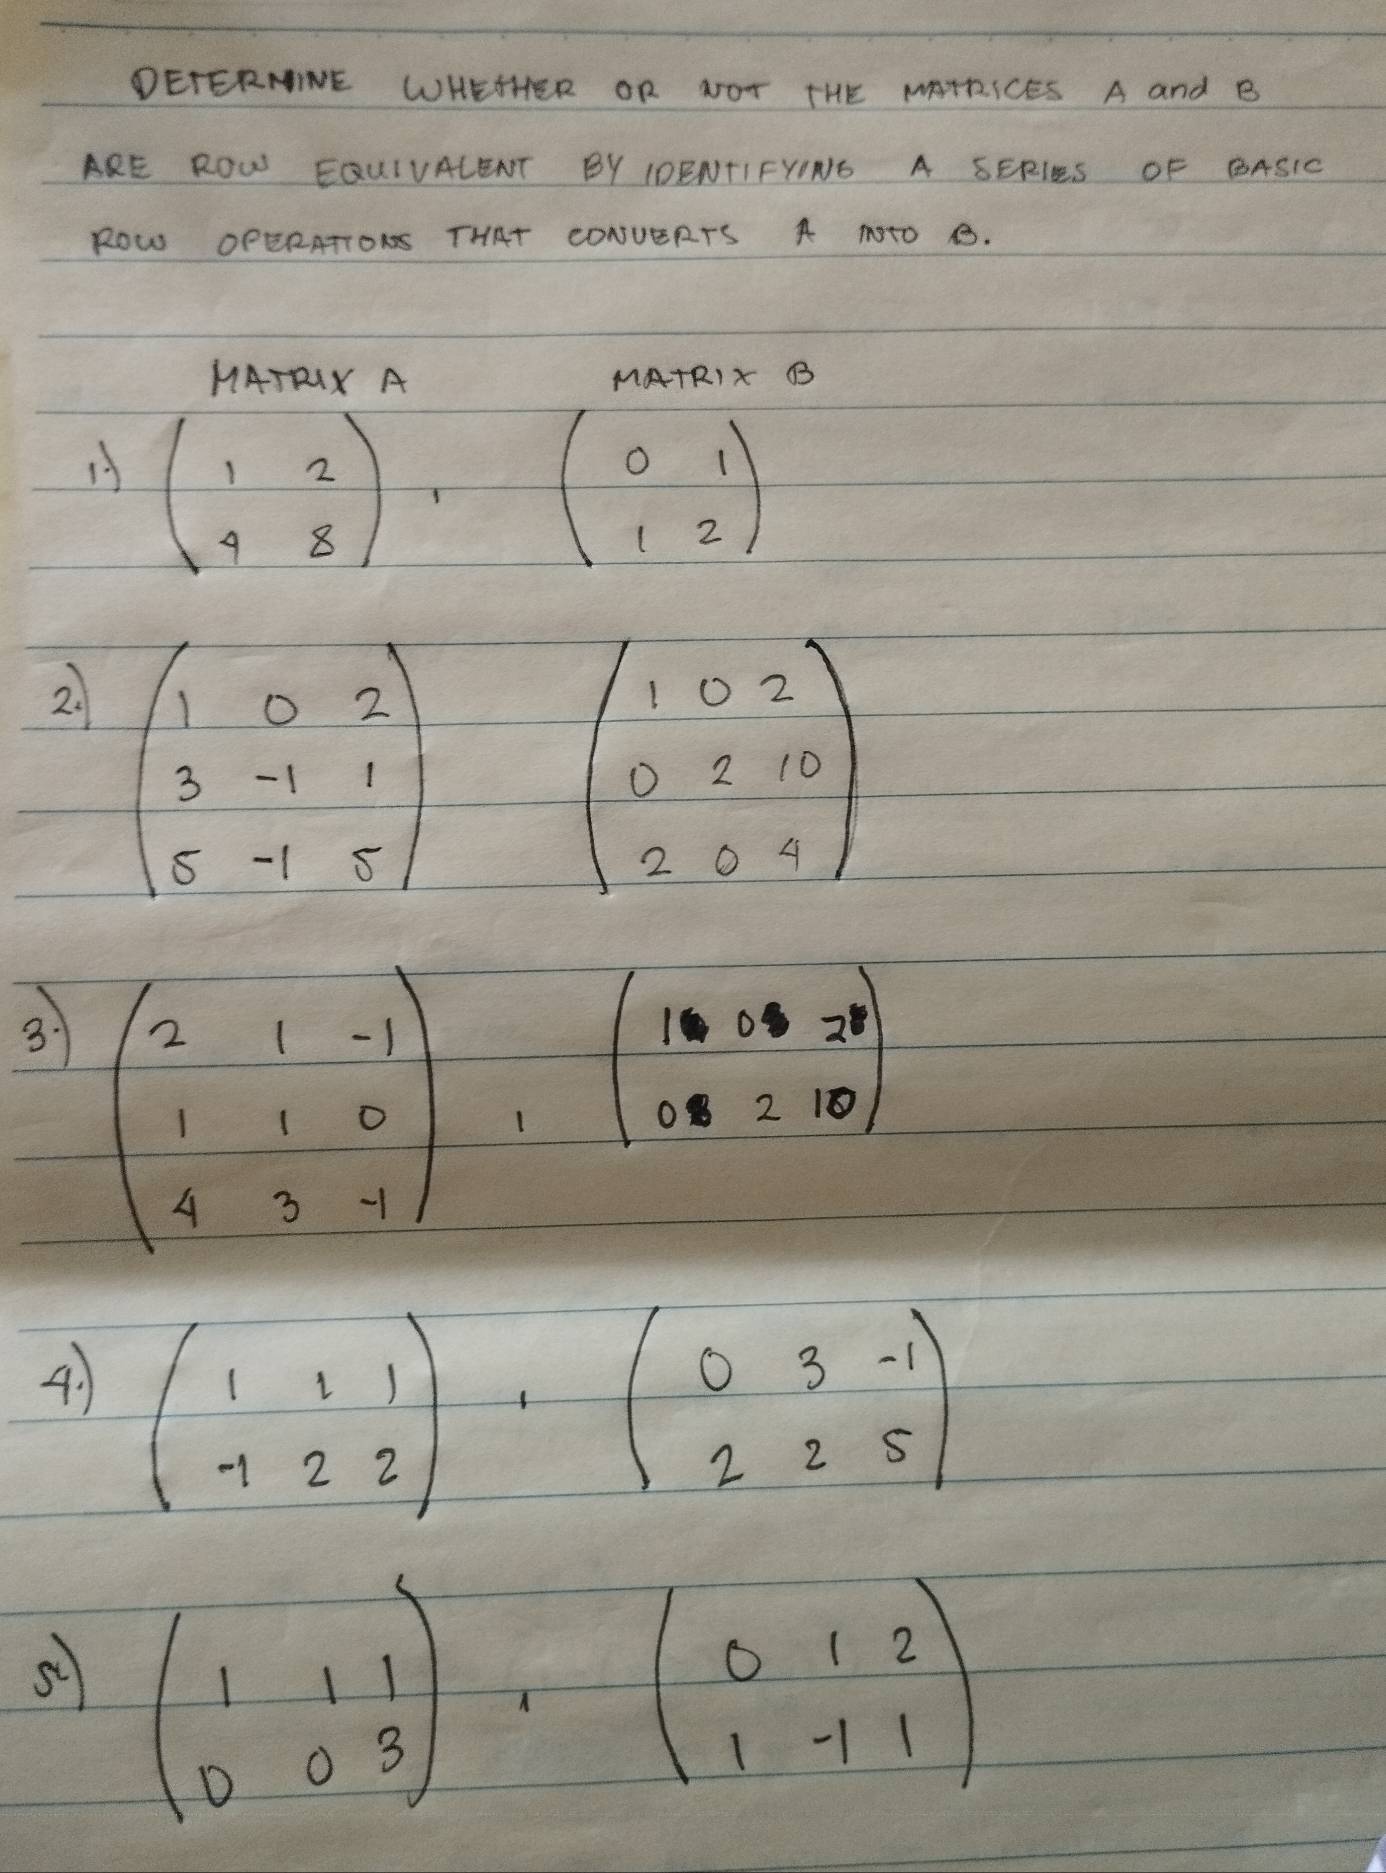 DETERMINE WHETHER OR NOT THE MATRICES A and B
ARE ROW EQUIVALENT BY IDENTIFYING A SERIES OF BASIC
ROW OPERATIONS THAT CONVERTS A INTO B.
MATRIX A MATRIX B
1.) ( 1 2 ) , ( 0 1 )
( 4 8 ) ( 1 2 )
2.) ( 1 0 2 ) ( 1 0 2 )
( 3 -1 1 ) ( 0 2 10 )
( 5 -1 5 ) ( 2 0 4 )
3.) ( 2 1 -1 ) , ( 1 0 2 )
( 1 1 0 ) ( 0 2 10 )
( 4 3 -1 )
4.) ( 1 1 1 ) , ( 0 3 -1 )
( -1 2 2 ) ( 2 2 5 )
5.) ( 1 1 1 ) , ( 0 1 2 )
( 0 0 3 ) ( 1 -1 1 )